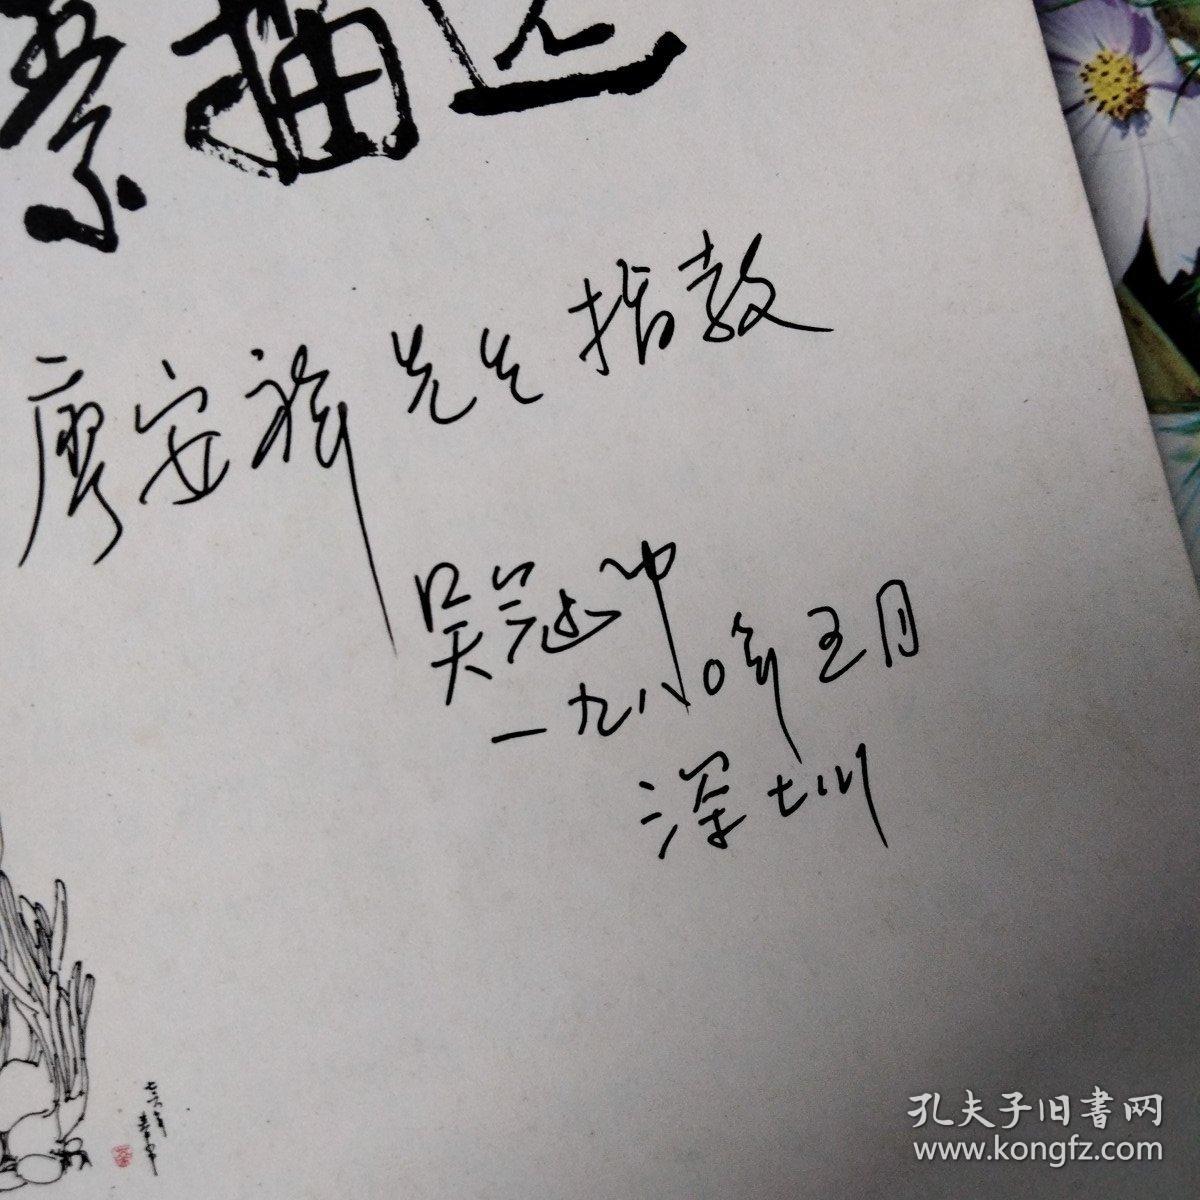 素描
廖安祥先生指教
吴冠中
一九八〇年五月
深圳
孔夫子旧書网
www.kongfz.com